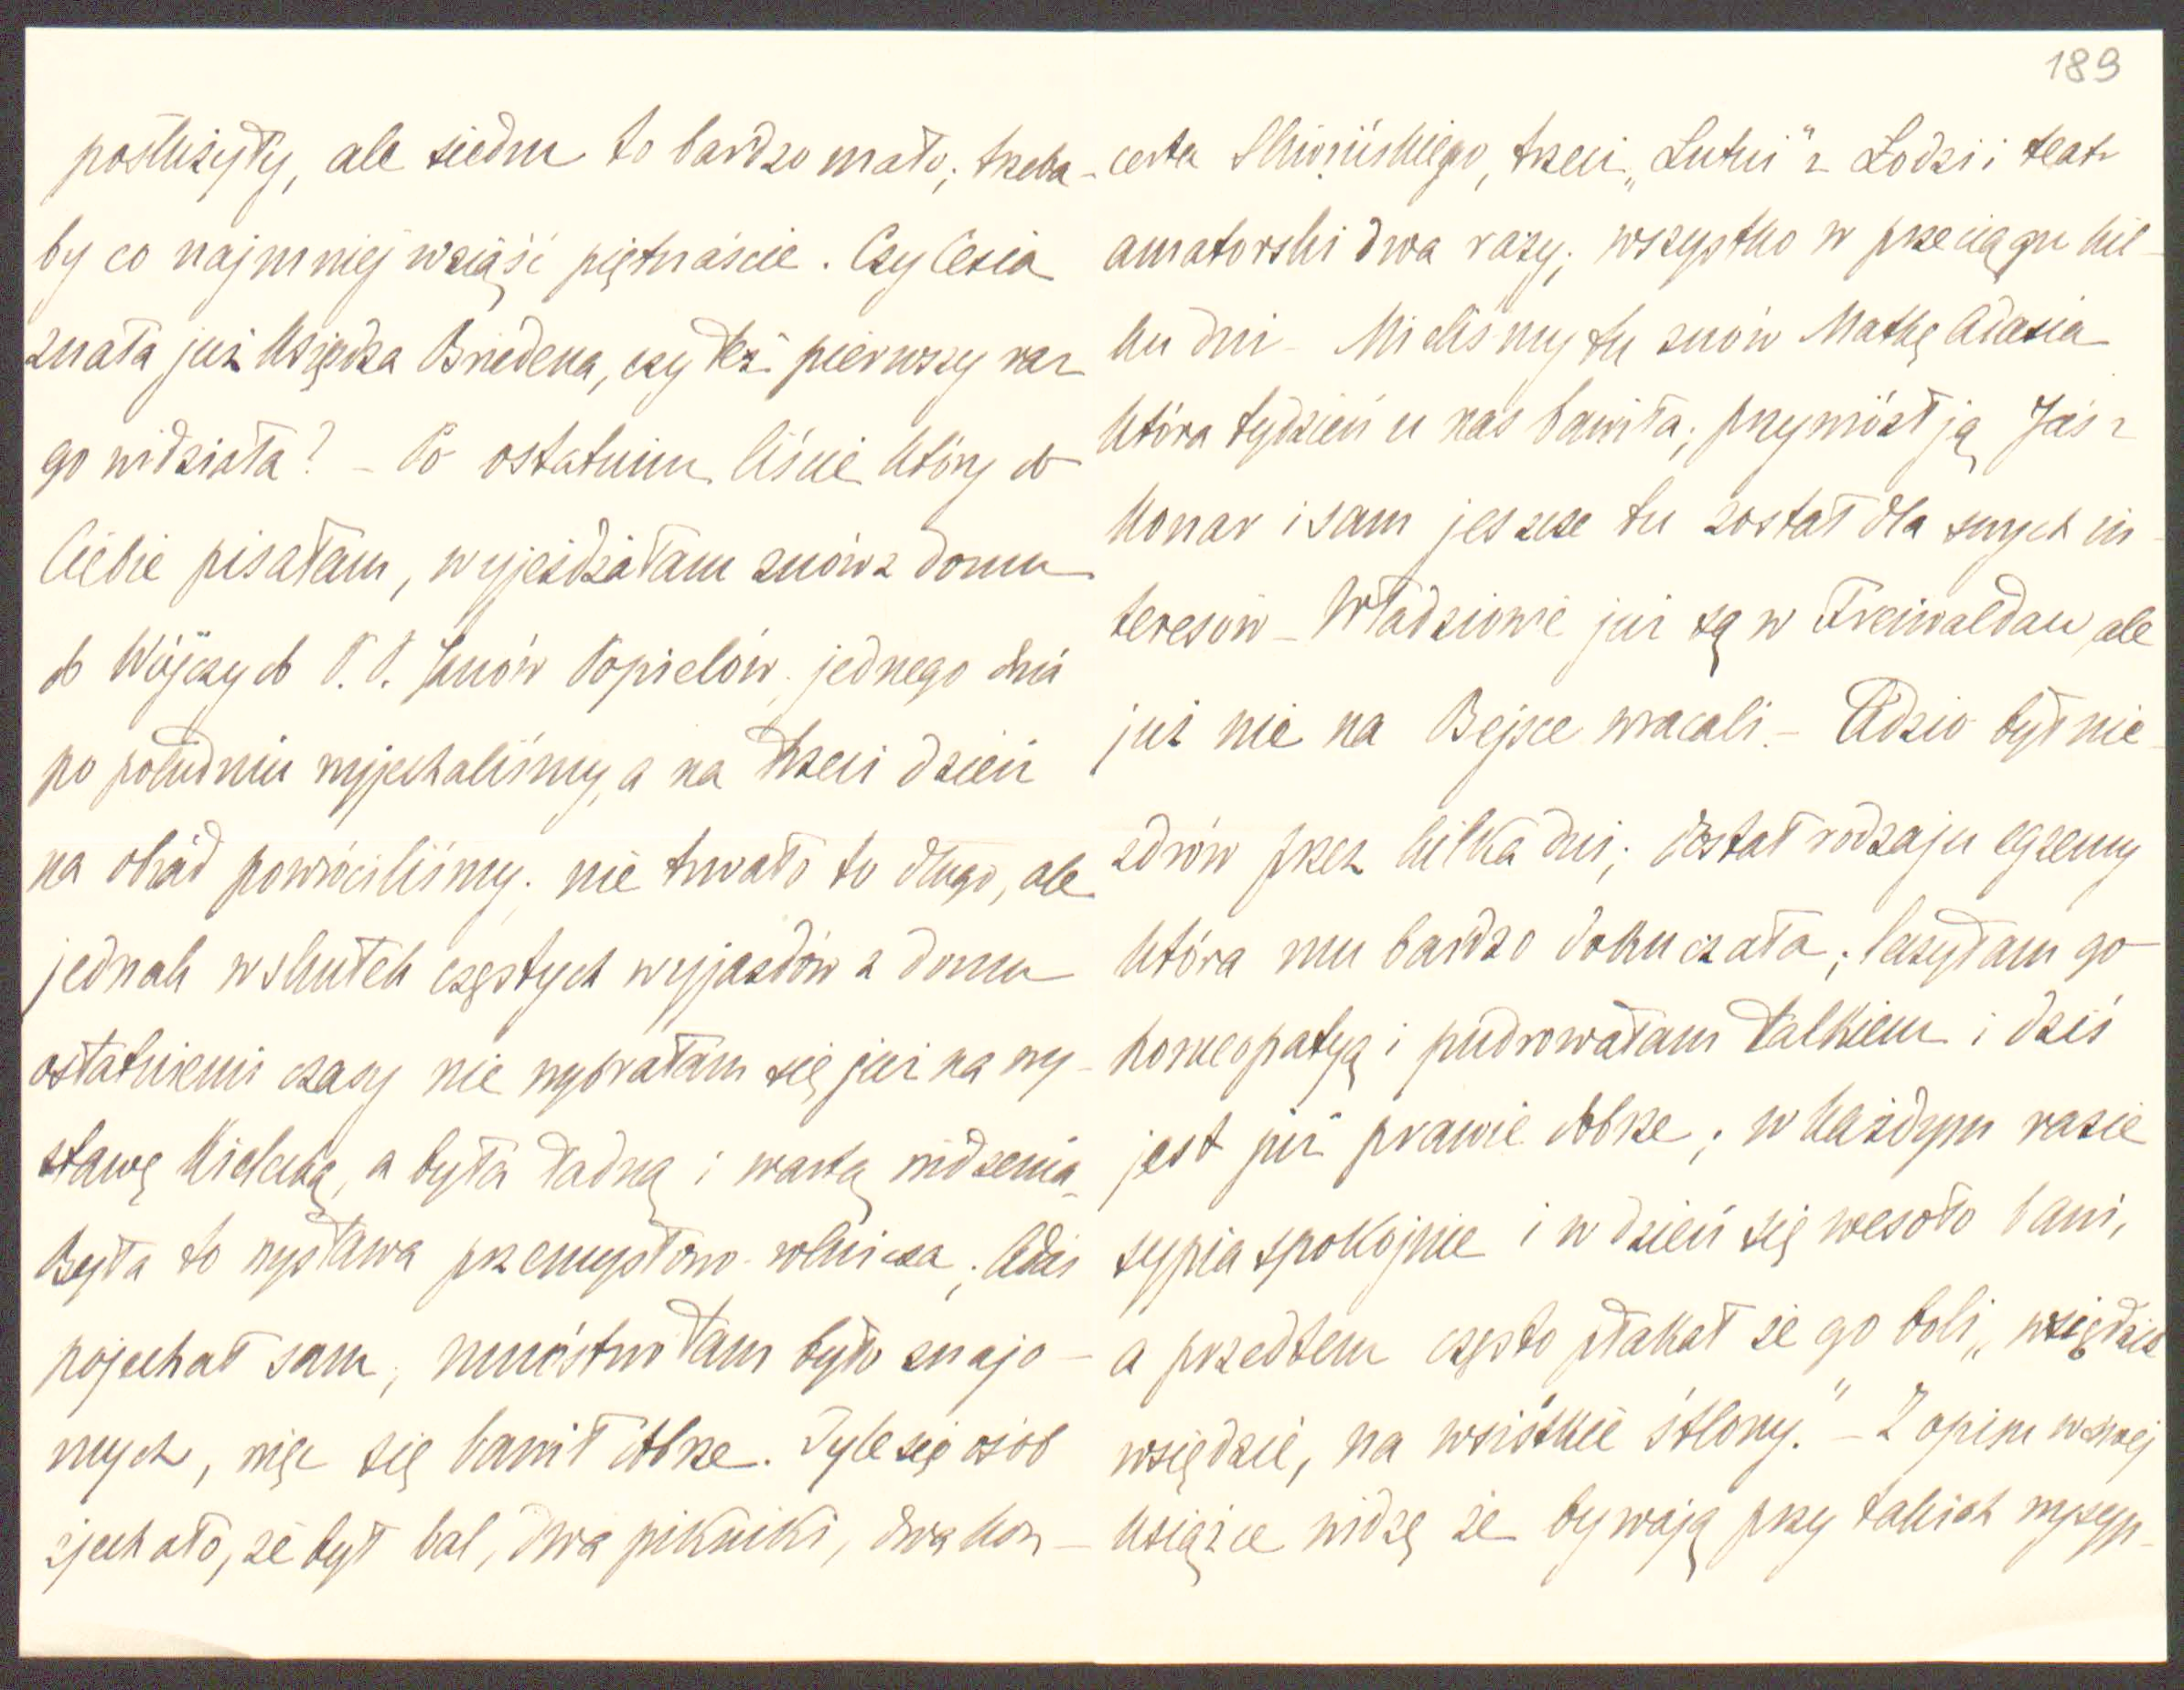 189
posłużyły, ale siedm to bardzo mało; trzeba-
by co najmniej wziąść piętnaście. Czy Cesia
znała już Księdza Briedena, czy też pierwszy raz
go widziała? – Po ostatnim liście który do
Ciebie pisałam, wyjeżdżałam znów z domu
do Wójczy do P. P. Janów Popielów; jednego dnia
po południu wyjechaliśmy, a na trzeci dzień
na obiad powróciliśmy; nie trwało to długo, ale
jednak wskutek częstych wyjazdów z domu
ostatniemi czasy nie wybrałam się już na wy-
stawę Kielecką, a była ładną i wartą widzenia.
Była to wystawa przemysłowo-rolnicza; Adaś
pojechał sam, mnóstwo tam było znajo-
mych, więc się bawił dobrze. Tyle się osób
zjechało, że był bal, dwa pikniki, dwa kon-
certa Śliwińskiego, trzeci „Lutni" z Łodzi i teatr
amatorski dwa razy; wszystko w przeciągu kil-
ku dni – Mieliśmy tu znów Matkę Adasia
która tydzień u nas bawiła; przywiózł ją Jaś z
Konar i sam jeszcze tu został dla swych in-
teresów – Władziowie już są w Freiwaldau, ale
już nie na Bejsce wracali. – Adzio był nie-
zdrów przez kilka dni; dostał rodzaju egzemy
która mu bardzo dokuczała; leczyłam go
homeopatyą i pudrowałam talkiem i dziś
jest już prawie dobrze; w każdym razie
sypia spokojnie i w dzień się wesoło bawi,
a przedtem często płakał że go boli „wsiędzie
wsiędzie, na wsiśtkie śtlony." – Z opisu w swej
książce widzę że bywają przy takich wysyp-